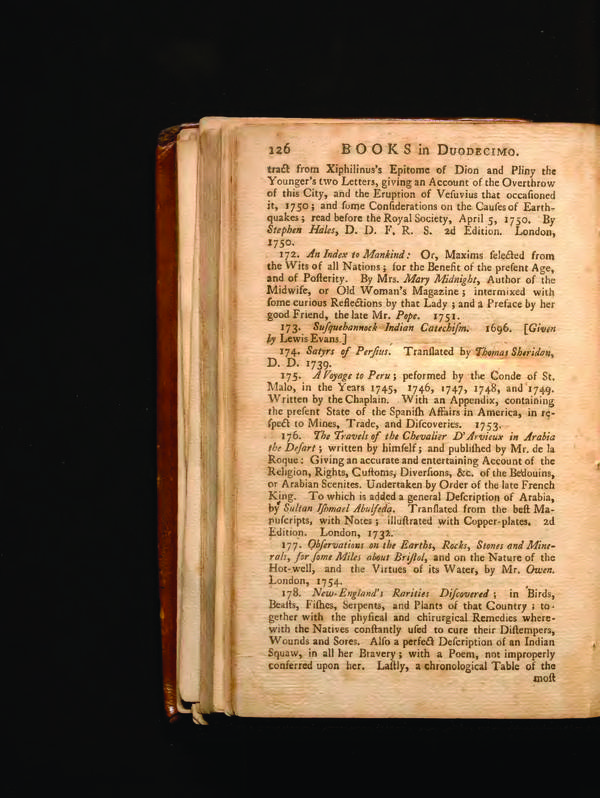 126 BOOKS in DUODECIMO.
tract from Xiphilinus's Epitome of Dion and Pliny the
Younger's two Letters, giving an Account of the Overthrow
of this City, and the Eruption of Vesuvius that occasioned
it, 1750; and ſome Conſiderations on the Cauſes of Earth-
quakes; read before the Royal Society, April 5, 1750. By
Stephen Hales, D. D. F. R. S. 2d Edition. London,
1750.
172. An Index to Mankind: Or, Maxims ſelected from
the Wits of all Nations; for the Benefit of the preſent Age,
and of Poſterity. By Mrs. Mary Midnight, Author of the
Midwife, or Old Woman's Magazine; intermixed with
ſome curious Reflections by that Lady; and a Preface by her
good Friend, the late Mr. Pope. 1751.
173. Suſquehannock Indian Catechiſm. 1696. [Given
by Lewis Evans.]
174. Satyrs of Perſius. Tranſlated by Thomas Sheridan,
D. D. 1739.
175. A Voyage to Peru; peformed by the Conde of St.
Malo, in the Years 1745, 1746, 1747, 1748, and 1749.
Written by the Chaplain. With an Appendix, containing
the preſent State of the Spaniſh Affairs in America, in re-
ſpect to Mines, Trade, and Diſcoveries. 1753.
176. The Travels of the Chevalier D'Arvieux in Arabia
the Deſart; written by himſelf; and publiſhed by Mr. de la
Roque: Giving an accurate and entertaining Account of the
Religion, Rights, Cuſtoms, Diverſions, &c. of the Bedouins,
or Arabian Scenites. Undertaken by Order of the late French
King. To which is added a general Deſcription of Arabia,
by Sultan Iſhmael Abulfeda. Tranſlated from the beſt Ma-
nuſcripts, with Notes; illuſtrated with Copper-plates. 2d
Edition. London, 1732.
177. Obſervations on the Earths, Rocks, Stones and Mine-
rals, for ſome Miles about Briſtol, and on the Nature of the
Hot-well, and the Virtues of its Water, by Mr. Owen.
London, 1754.
178. New-England's Rarities Diſcovered; in Birds,
Beaſts, Fiſhes, Serpents, and Plants of that Country: to-
gether with the phyſical and chirurgical Remedies where-
with the Natives conſtantly uſed to cure their Diſtempers,
Wounds and Sores. Alſo a perfect Deſcription of an Indian
Squaw, in all her Bravery; with a Poem, not improperly
conferred upon her. Laſtly, a chronological Table of the
moſt